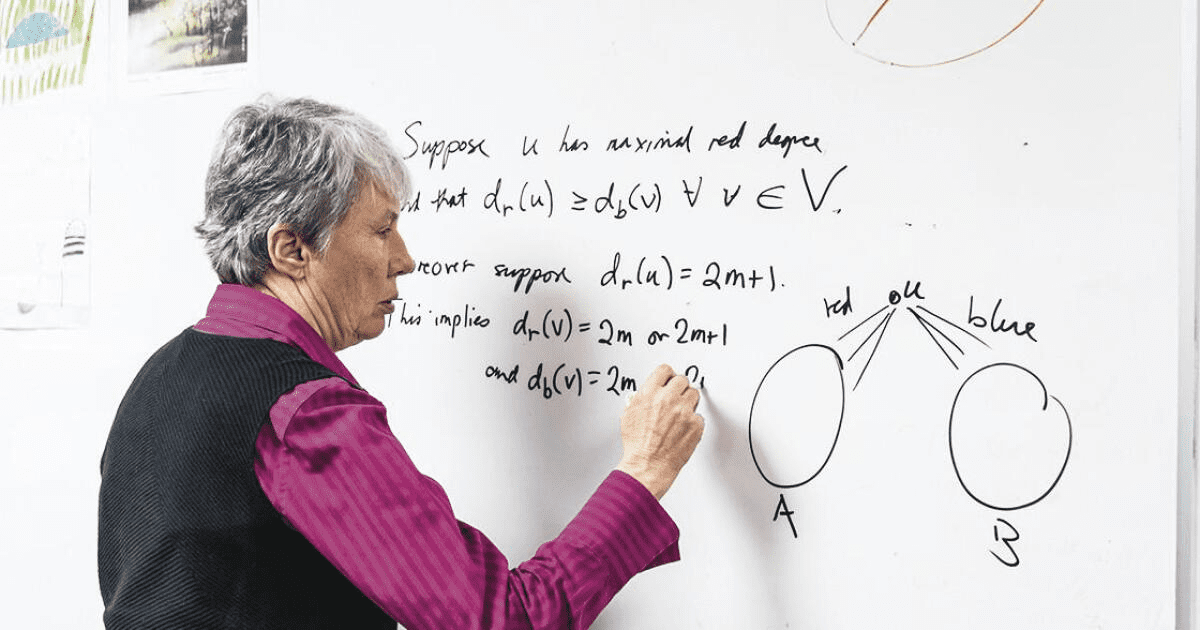 Suppose u has maximal red degree
that dr(u) ≥ db(v) ∀ v ∈ V.
suppose dr(u) = 2m+1.
This implies dr(v) = 2m or 2m+1
and db(v) = 2m
red u blue
A
B